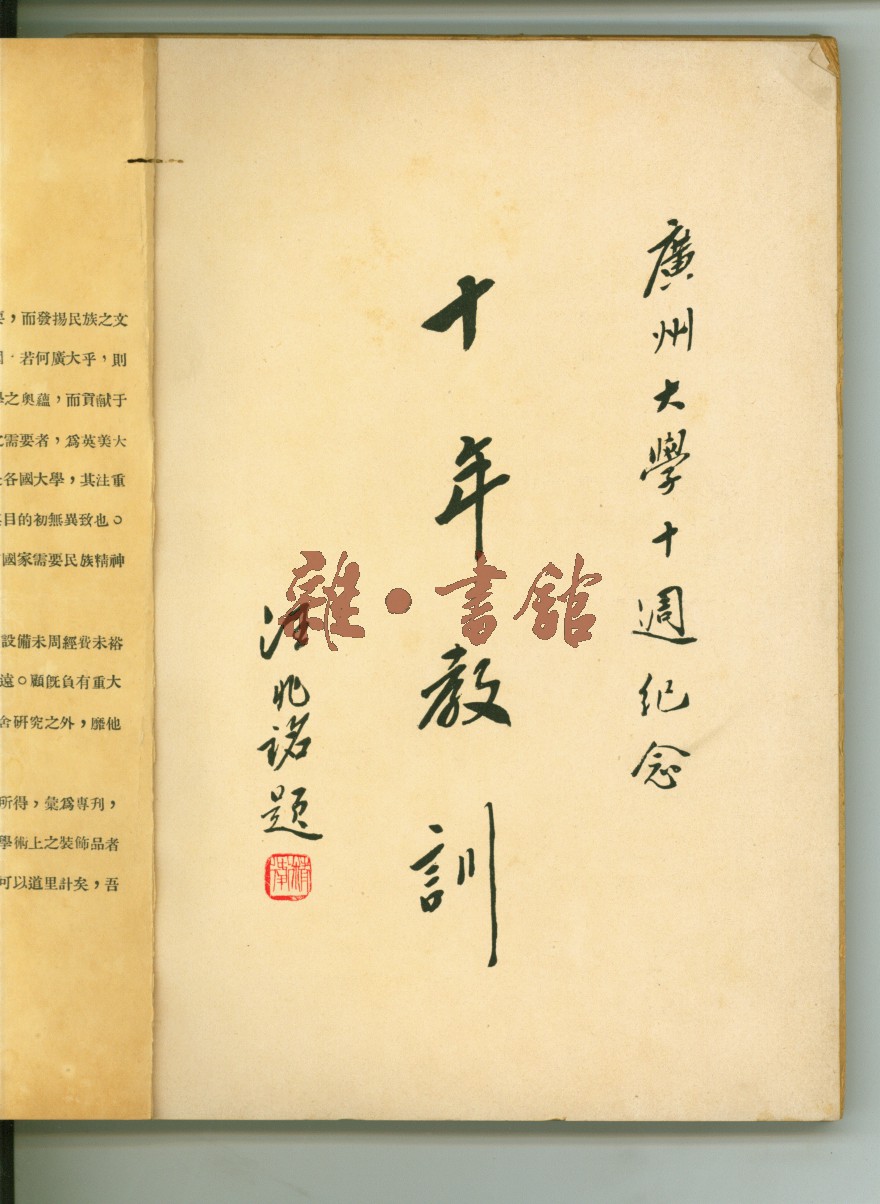 廣州大學十週紀念
十年教訓
汪兆銘題
雜·書館
，而發揚民族之文
若何廣大乎，則
之奧蘊，而貢献于
需要者，爲英美大
各國大學，其注重
目的初無異致也。
國家需要民族精神
設備未周經費未裕
遠。顧旣負有重大
研究之外，靡他
所得，彙爲專刊，
學術上之裝飾品者
可以道里計矣，吾